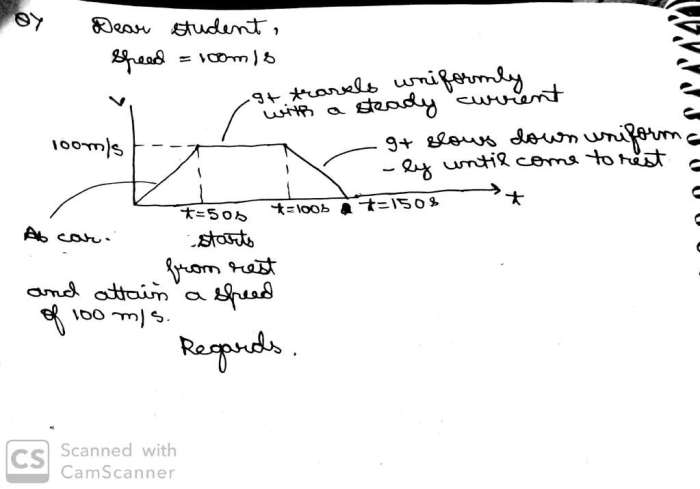 Dear student,
Speed = 100m/s
V
It travels uniformly
with a steady current
100m/s
It slows down uniform
-ly until come to rest
t=50s t=100s t=150s t
As car. starts
from rest
and attain a speed
of 100 m/s.
Regards.
CS Scanned with
CamScanner